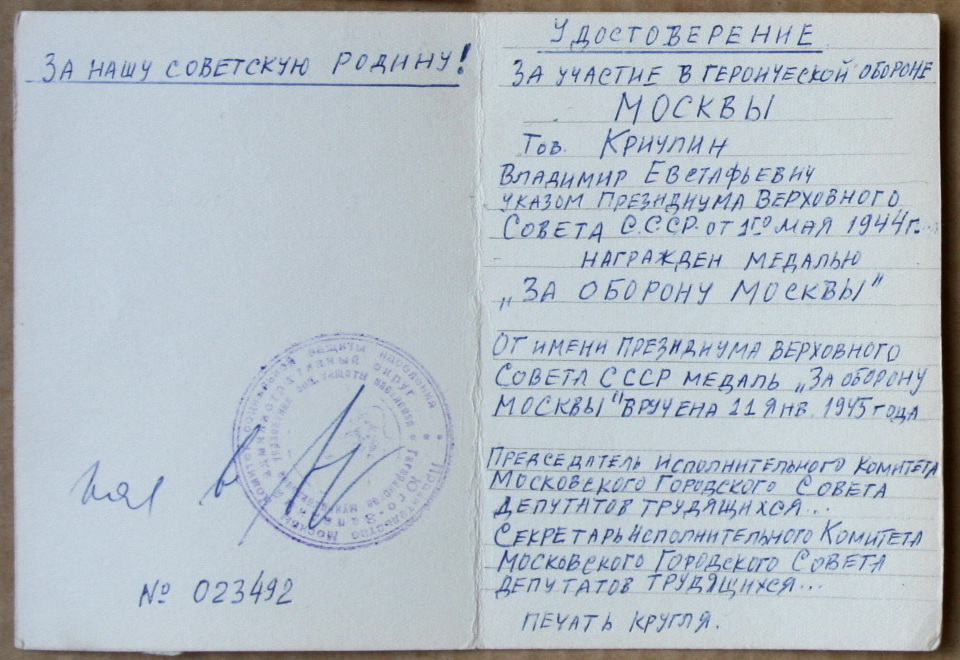 ЗА НАШУ СОВЕТСКУЮ РОДИНУ!
№ 023492
УДОСТОВЕРЕНИЕ
ЗА УЧАСТИЕ В ГЕРОИЧЕСКОЙ ОБОРОНЕ
МОСКВЫ
Тов. КРИЧЛИН
ВЛАДИМИР ЕВСТАФЬЕВИЧ
УКАЗОМ ПРЕЗИДИУМА ВЕРХОВНОГО
СОВЕТА С.С.С.Р. ОТ 1ГО МАЯ 1944Г.
НАГРАЖДЕН МЕДАЛЬЮ
„ЗА ОБОРОНУ МОСКВЫ"
ОТ ИМЕНИ ПРЕЗИДИУМА ВЕРХОВНОГО
СОВЕТА СССР МЕДАЛЬ „ЗА ОБОРОНУ
МОСКВЫ" ВРУЧЕНА 11 ЯНВ. 1945 ГОДА
ПРЕДСЕДАТЕЛЬ ИСПОЛНИТЕЛЬНОГО КОМИТЕТА
МОСКОВСКОГО ГОРОДСКОГО СОВЕТА
ДЕПУТАТОВ ТРУДЯЩИХСЯ...
СЕКРЕТАРЬ ИСПОЛНИТЕЛЬНОГО КОМИТЕТА
МОСКОВСКОГО ГОРОДСКОГО СОВЕТА
ДЕПУТАТОВ ТРУДЯЩИХСЯ...
ПЕЧАТЬ КРУГЛЯ.